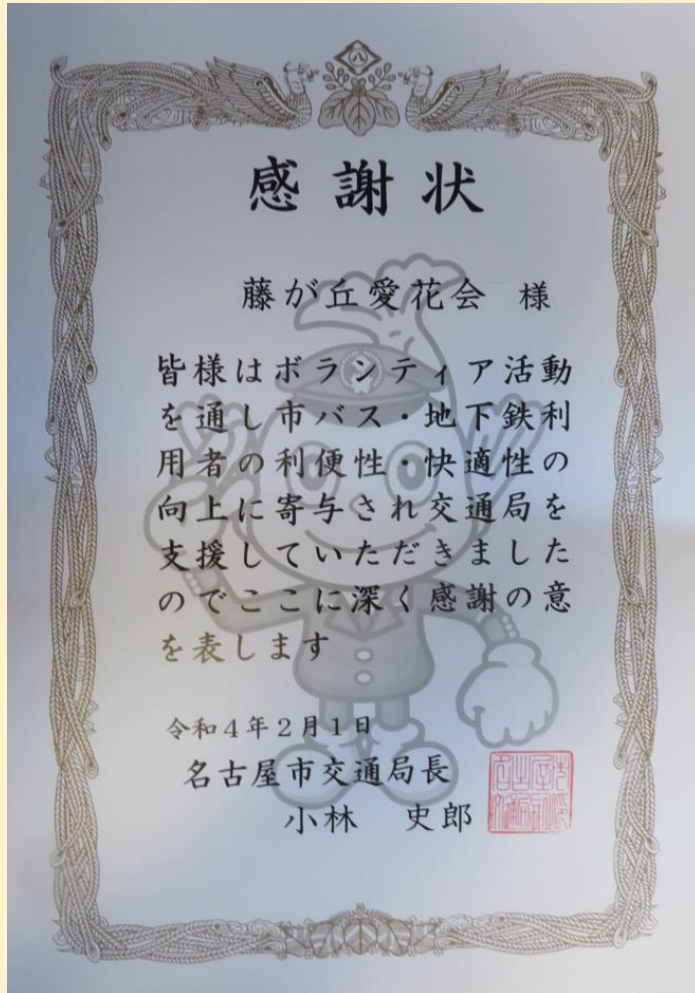 八
感謝状
藤が丘愛花会 様
皆様はボランティア活動
を通し市バス・地下鉄利
用者の利便性・快適性の
向上に寄与され交通局を
支援していただきました
のでここに深く感謝の意
を表します
令和4年2月1日
名古屋市交通局長
小林 史郎